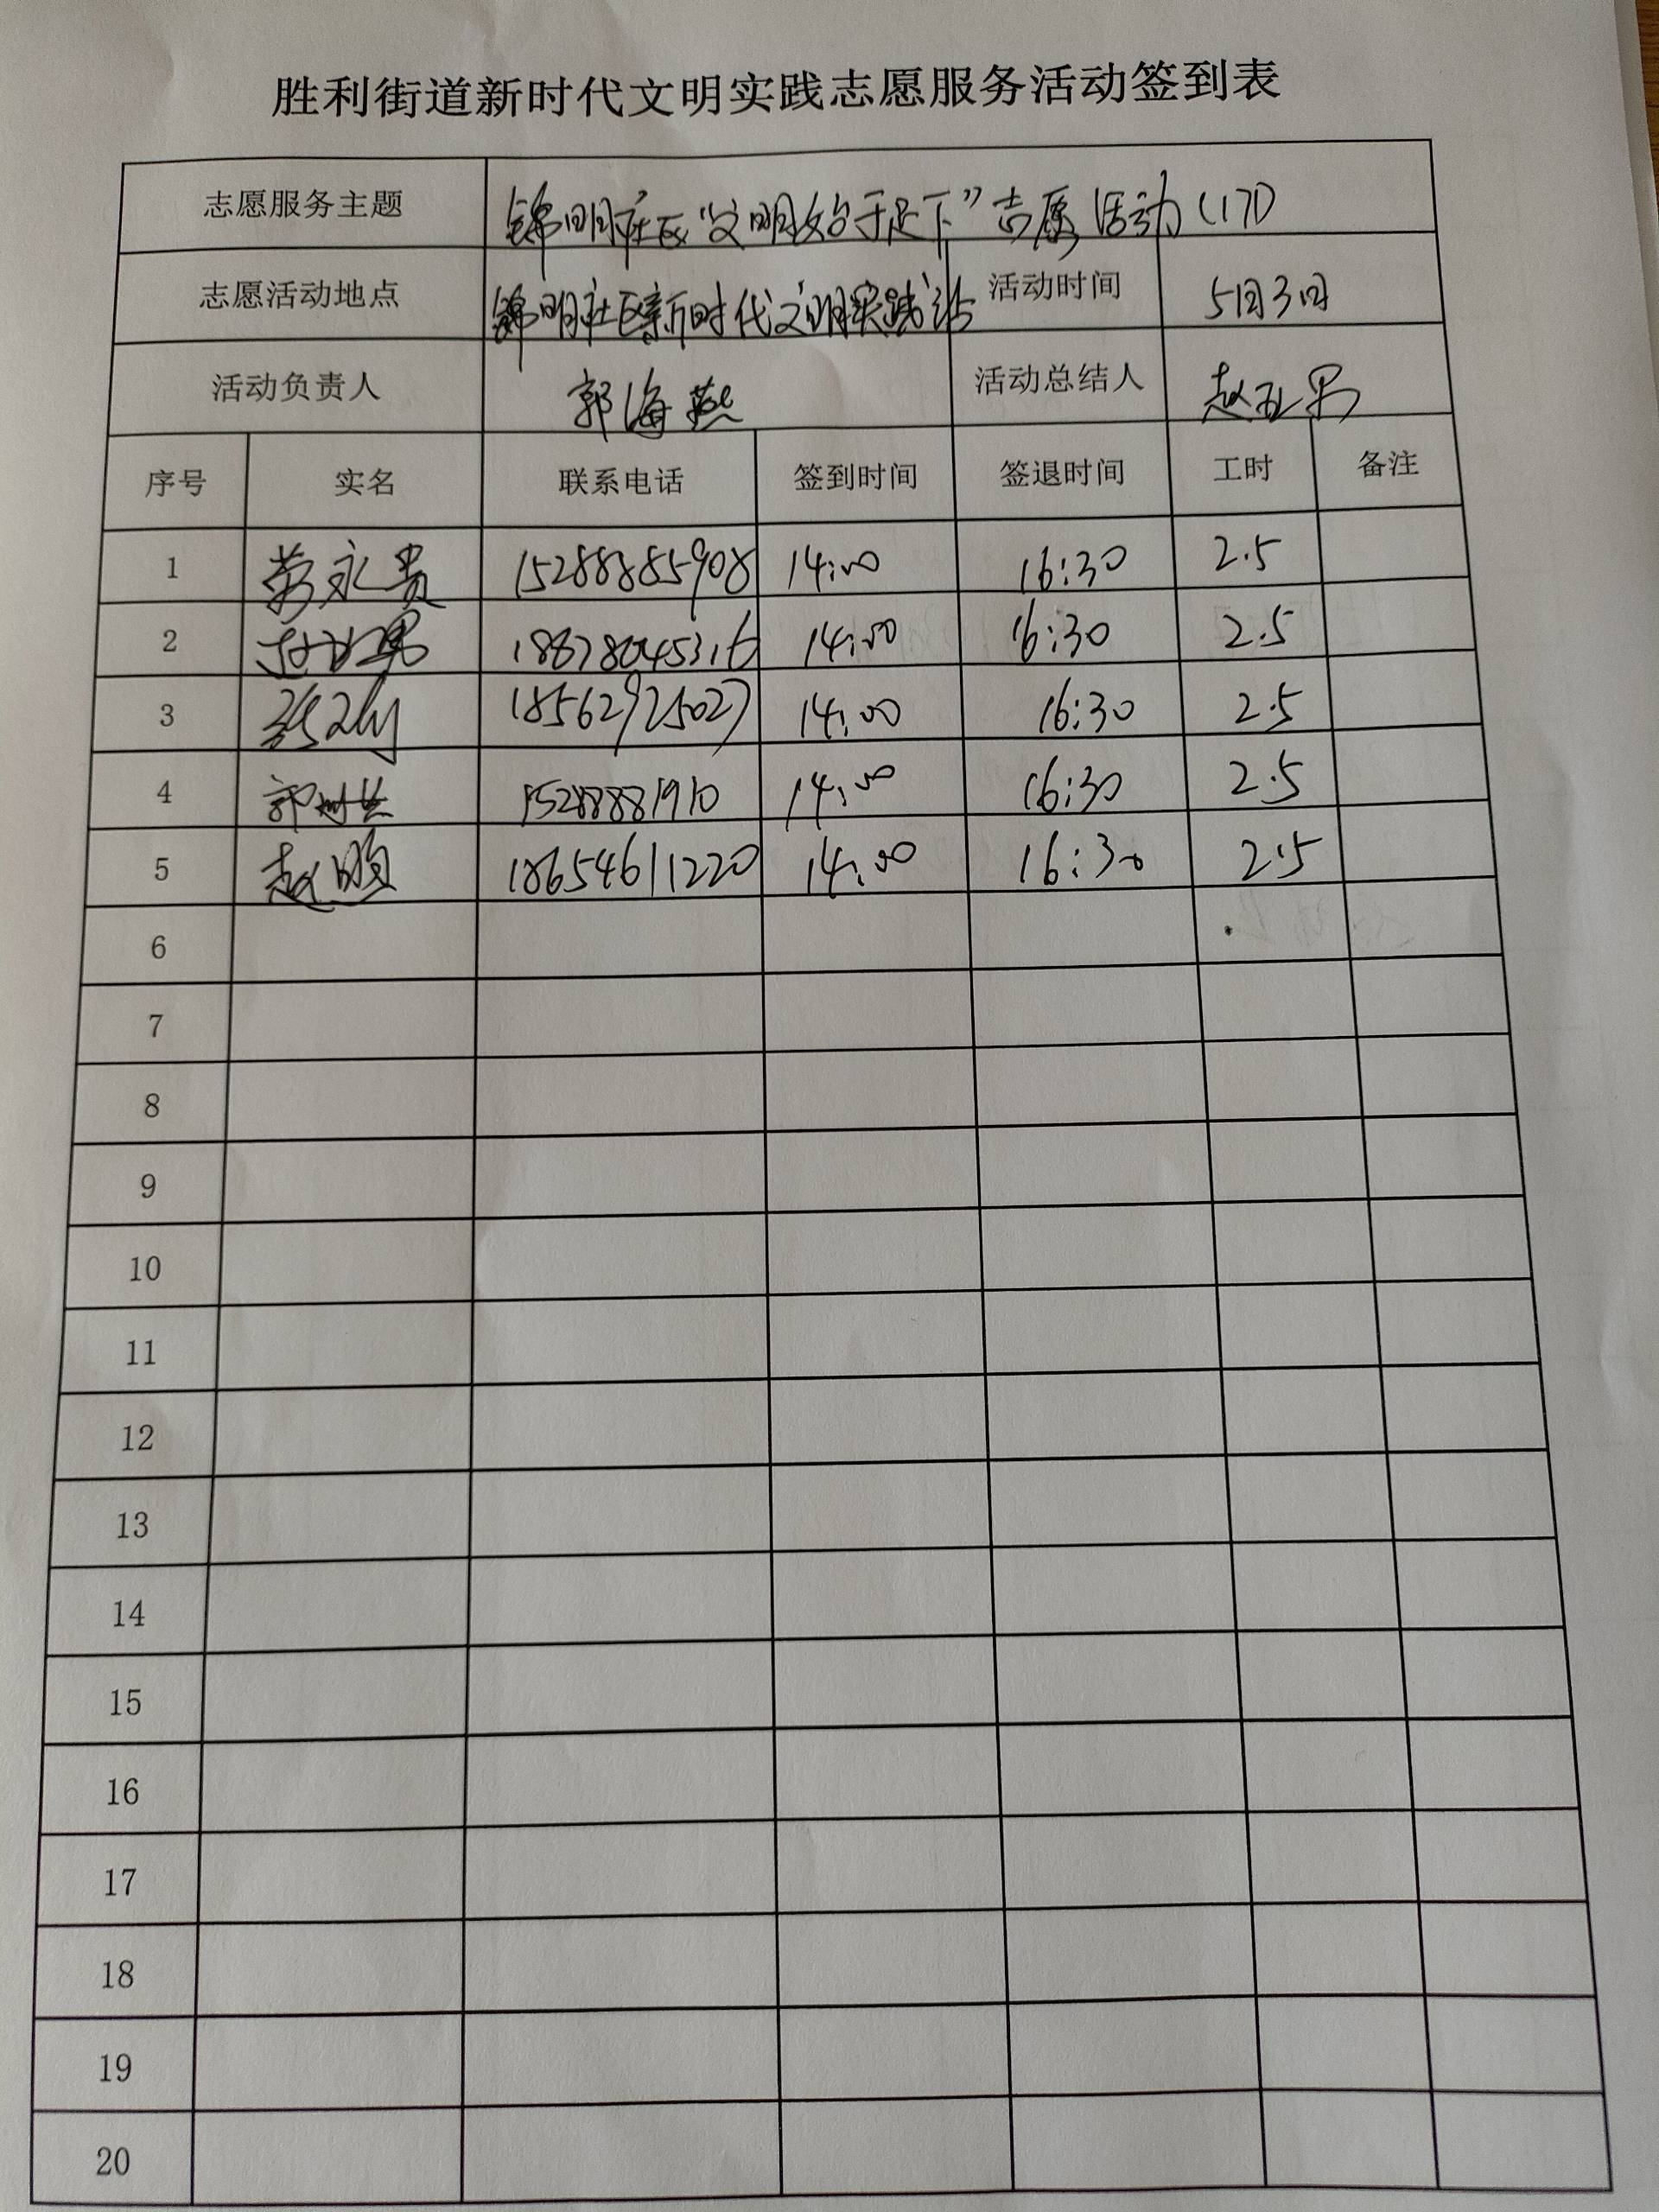 胜利街道新时代文明实践志愿服务活动签到表
志愿服务主题 锦明社区“文明始于足下”志愿活动(17)
志愿活动地点 锦明社区新时代文明实践站 活动时间 5月3日
活动负责人 郭海燕 活动总结人 赵亚男
序号 实名 联系电话 签到时间 签退时间 工时 备注
1 劳永贵 15288885908 14:00 16:30 2.5
2 赵亚男 18678045316 14:00 16:30 2.5
3 18562925027 14:00 16:30 2.5
4 15288881910 14:00 16:30 2.5
5 18654611220 14:00 16:30 2.5
6
7
8
9
10
11
12
13
14
15
16
17
18
19
20